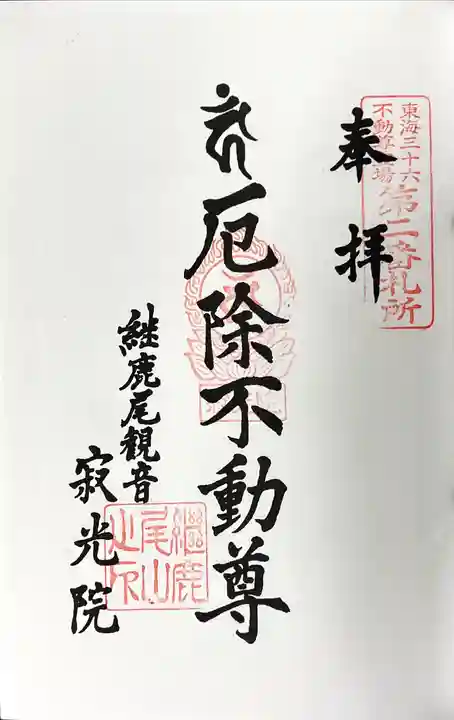 奉拝
東海三十六
不動尊霊場
第二番札所
厄除不動尊
継鹿尾観音
寂光院
継鹿
尾山
之印